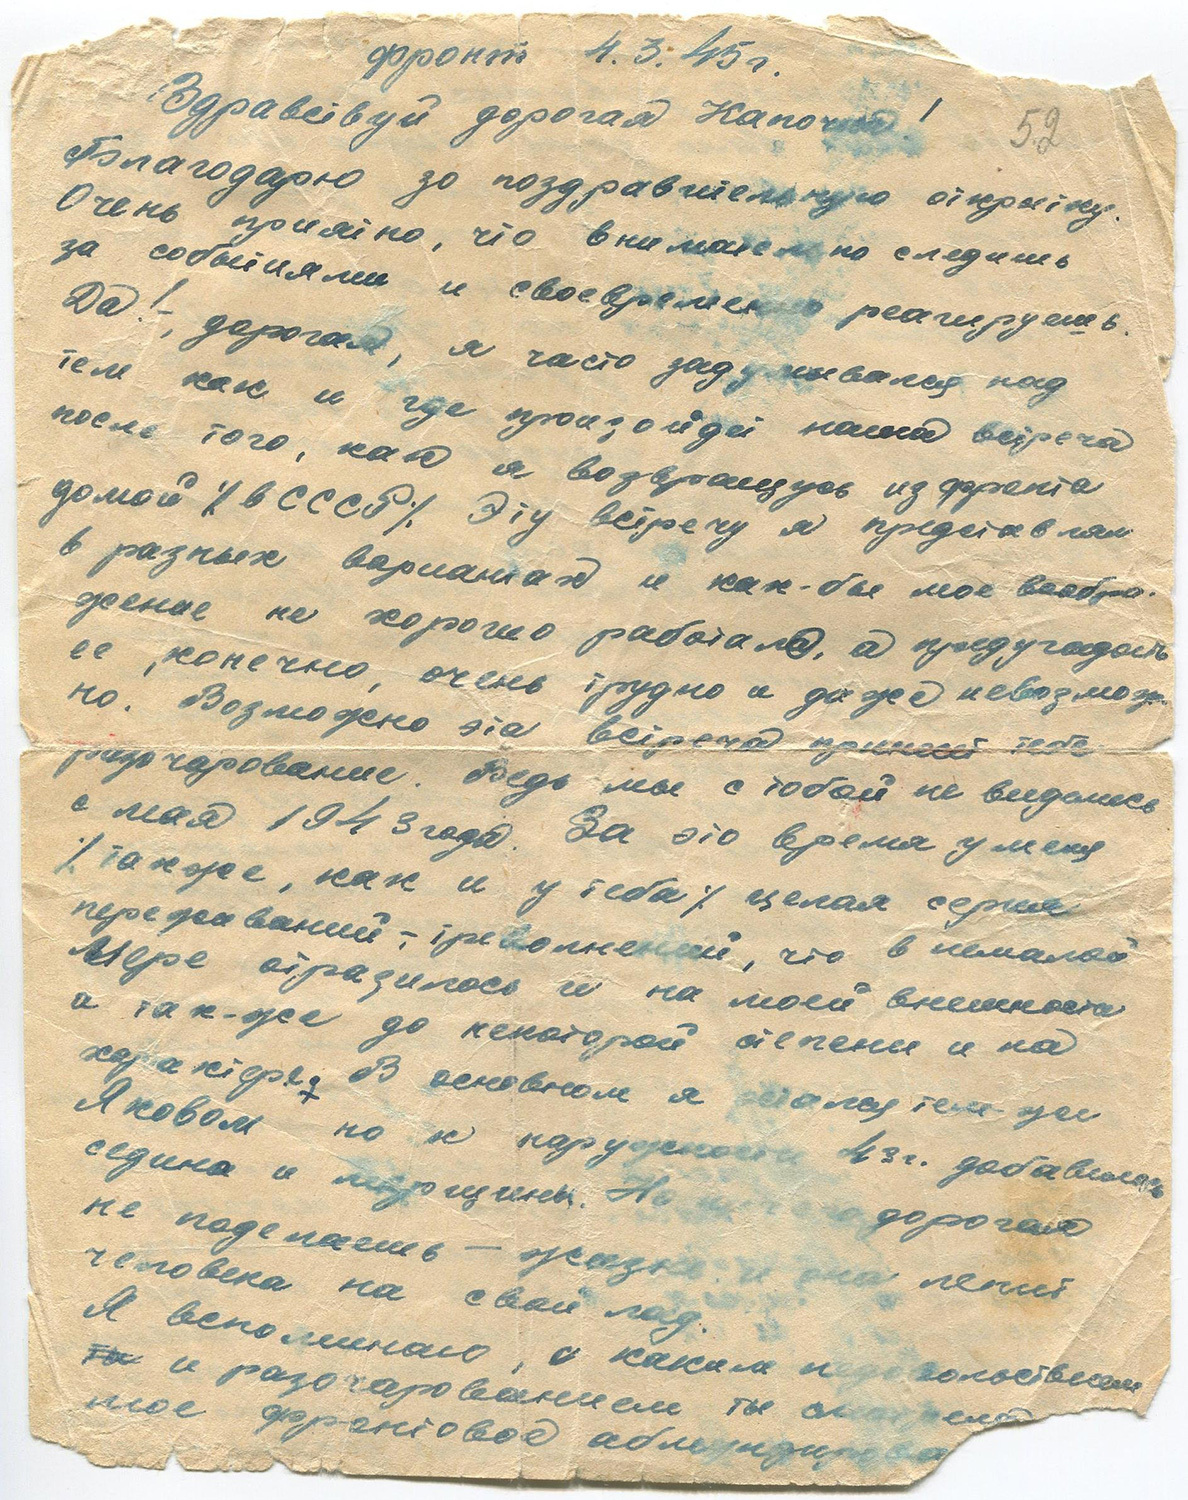 фронт 4.3.45г.
52
Здравствуй дорогая Капочка!
Благодарю за поздравительную открытку.
Очень приятно, что внимательно следишь
за событиями и своевременно реагируешь.
Да!-, дорогая, я часто задумывался над
тем как и где произойдет наша встреча
после того, как я возвращусь из фронта
домой /в СССР/. Эту встречу я представлял
в разных вариантах и как-бы мое вообра-
жение не хорошо работало, а предугадать
ее, конечно, очень трудно и даже невозмож-
но. Возможно эта встреча принесет тебе
разочарование. Ведь мы с тобой не виделись
с мая 1943 года. За это время у меня
/также, как и у тебя/ целая серия
переживаний, треволнений, что в немалой
мере отразилось и на моей внешности
а так-же до некоторой степени и на
характере. В основном я остался тем-же
Яковом но к наружности 43г. добавилась
седина и морщины. Но ничего дорогая
не поделаешь — жизнь и она лепит
человека на свой лад.
Я вспоминаю, с каким недовольствием
и разочарованием ты смотрела
мое фронтовое